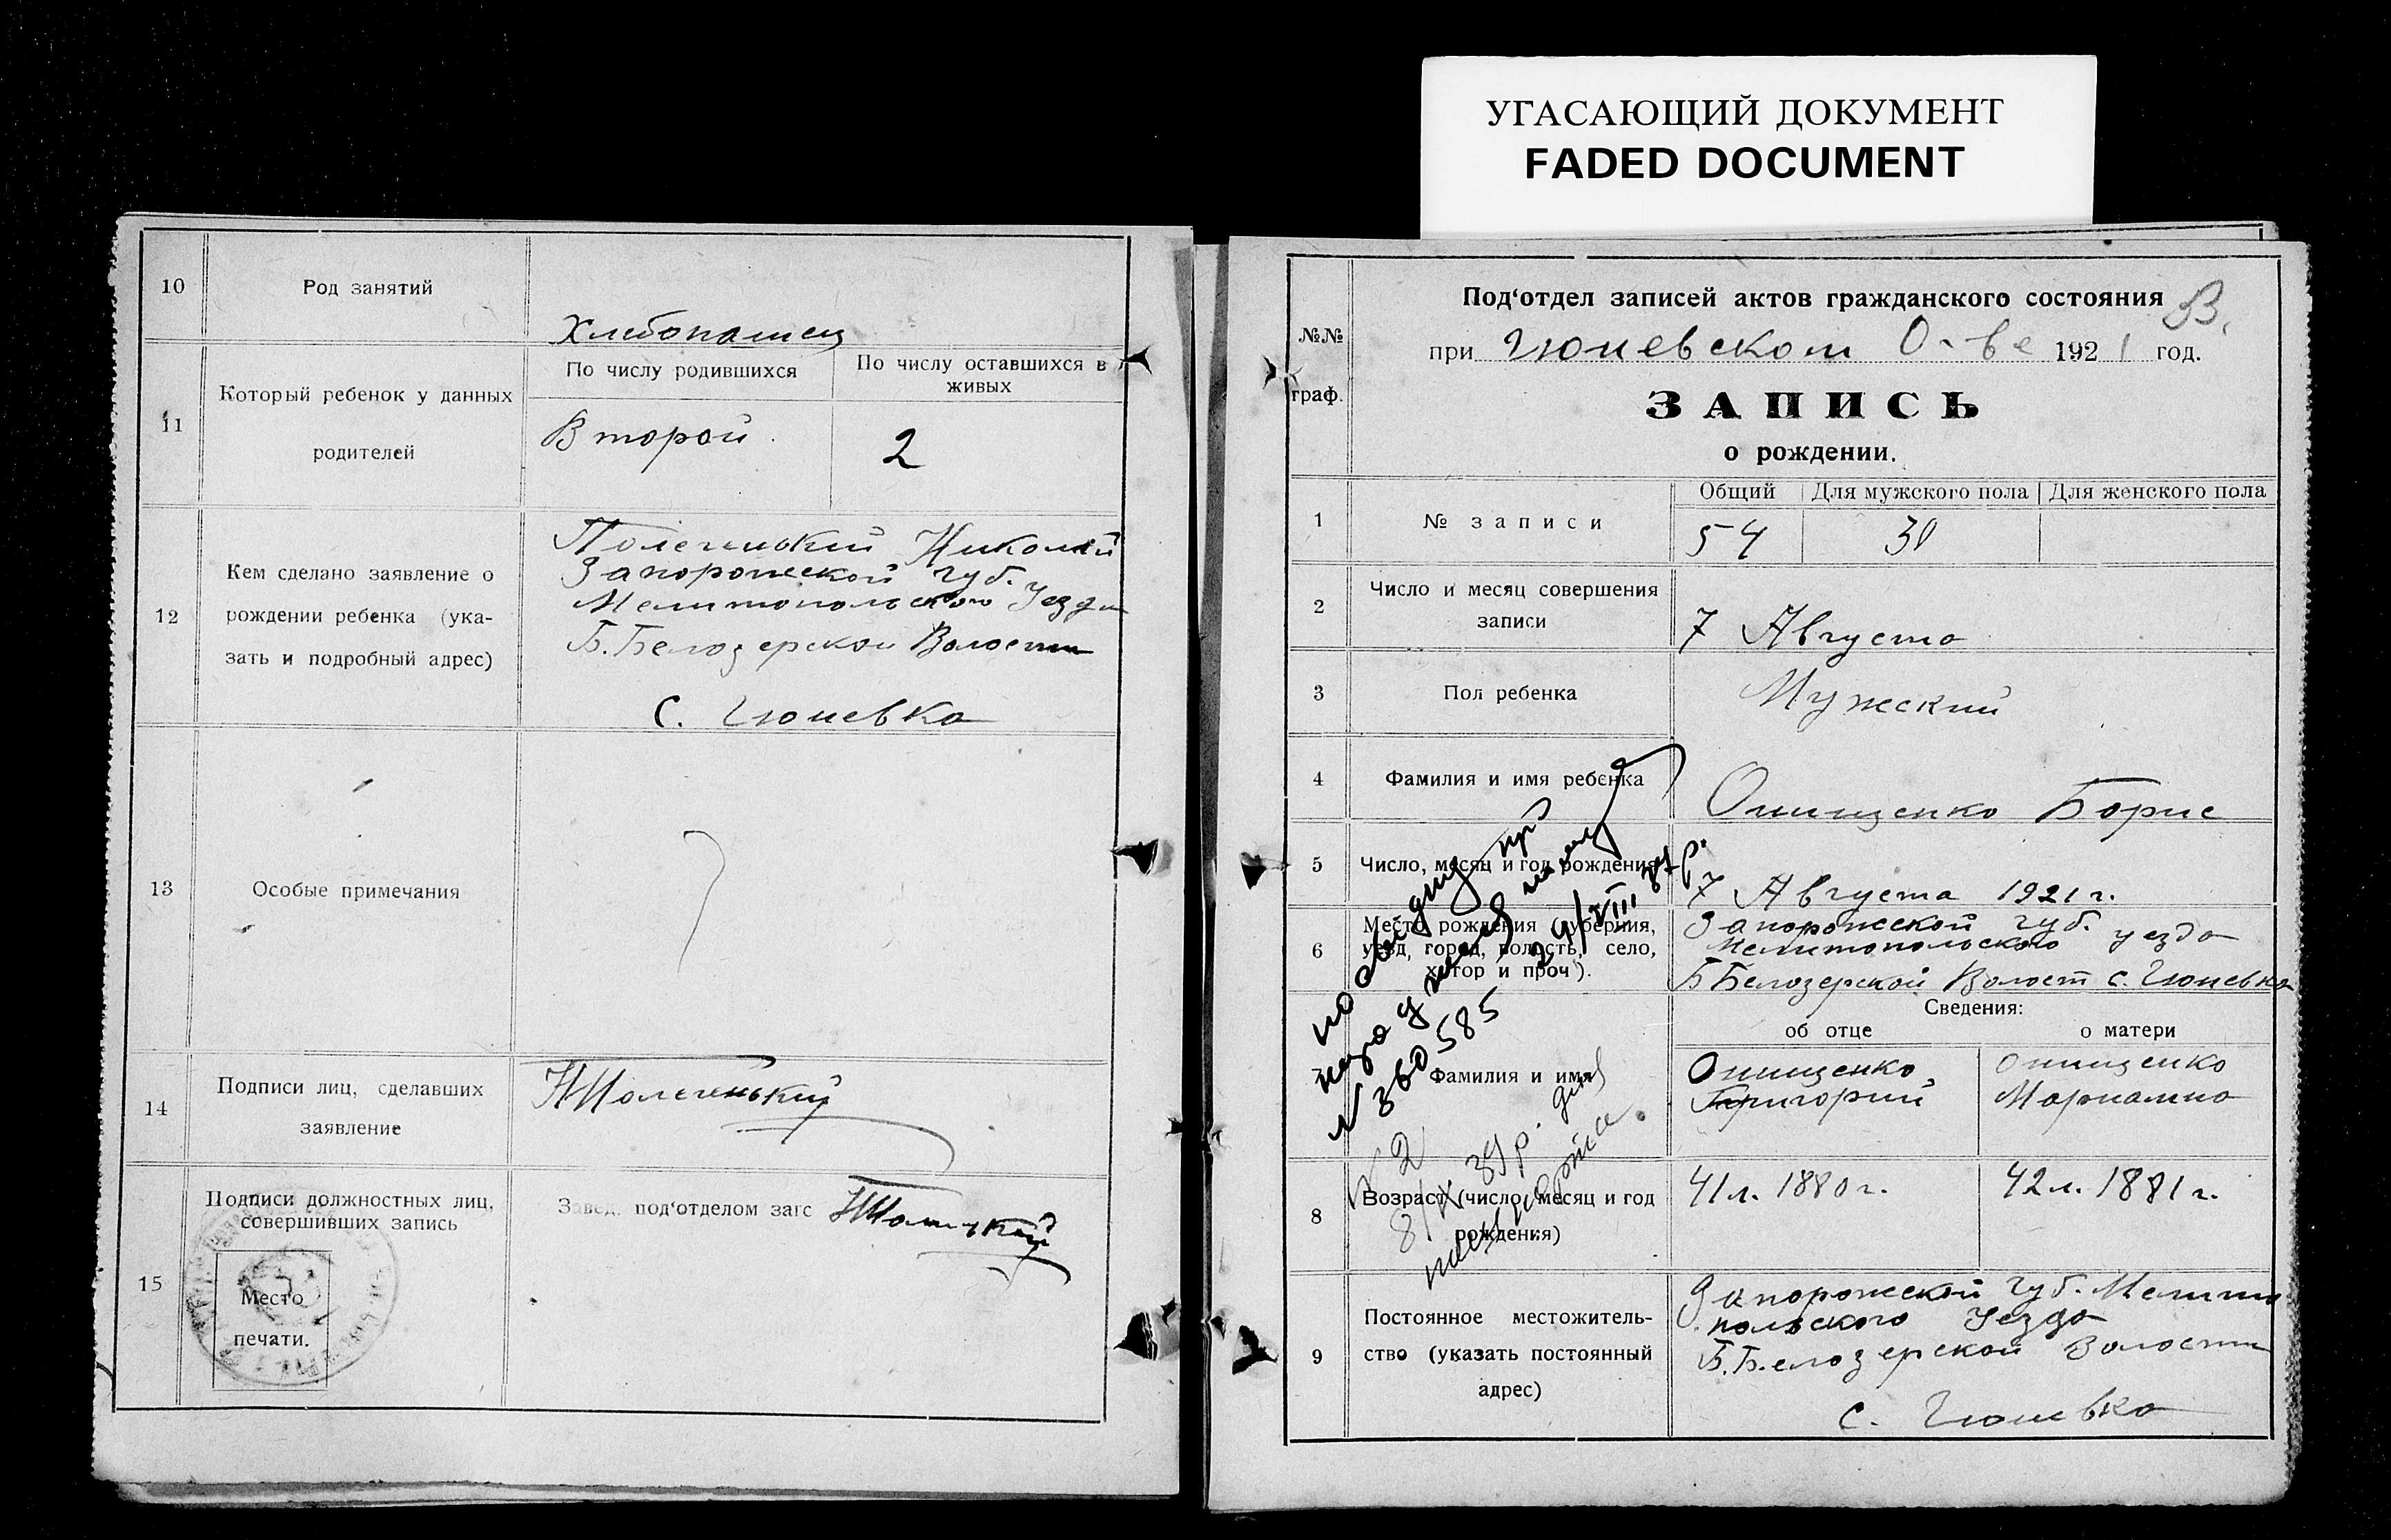 УГАСАЮЩИЙ ДОКУМЕНТ
FADED DOCUMENT
10
Род занятий
Хлебопашец
11
Который ребенок у данных
родителей
По числу родившихся
По числу оставшихся в
живых
Второй
2
12
Кем сделано заявление о
рождении ребенка (ука-
зать и подробный адрес)
Николай
Запорожской губ.
Мелитопольского Уезда
Б. Белозерской Волости
С. Гюневка
13
Особые примечания
14
Подписи лиц, сделавших
заявление
15
Подписи должностных лиц,
совершивших запись
Завед. под‘отделом загс
Место
печати.
№№
граф.
Под‘отдел записей актов гражданского состояния
В.
при Гюневском О-ве 1921 год.
ЗАПИСЬ
о рождении.
1
№ записи
Общий
Для мужского пола
Для женского пола
54
30
2
Число и месяц совершения
записи
7 Августа
3
Пол ребенка
Мужский
4
Фамилия и имя ребенка
Онищенко Борис
5
Число, месяц и год рождения
7 Августа 1921 г.
6
Место рождения (губерния,
уезд, город, волость, село,
хутор и проч).
Запорожской губ.
Мелитопольского уезда
Б Белозерской Волост с. Гюневка
Сведения:
об отце
о матери
7
Фамилия и имя
Онищенко
Григорий
Онищенко
Марианна
№ 360585
8
Возраст (число, месяц и год
рождения)
41 л. 1880 г.
42 л. 1881 г.
9
Постоянное местожитель-
ство (указать постоянный
адрес)
Запорожской Губ. Мелито
польского Уезда
Б. Белозерской Волости
с. Гюневка